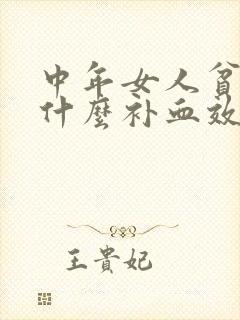 中年女人貧
什麼补血效
王貴妃